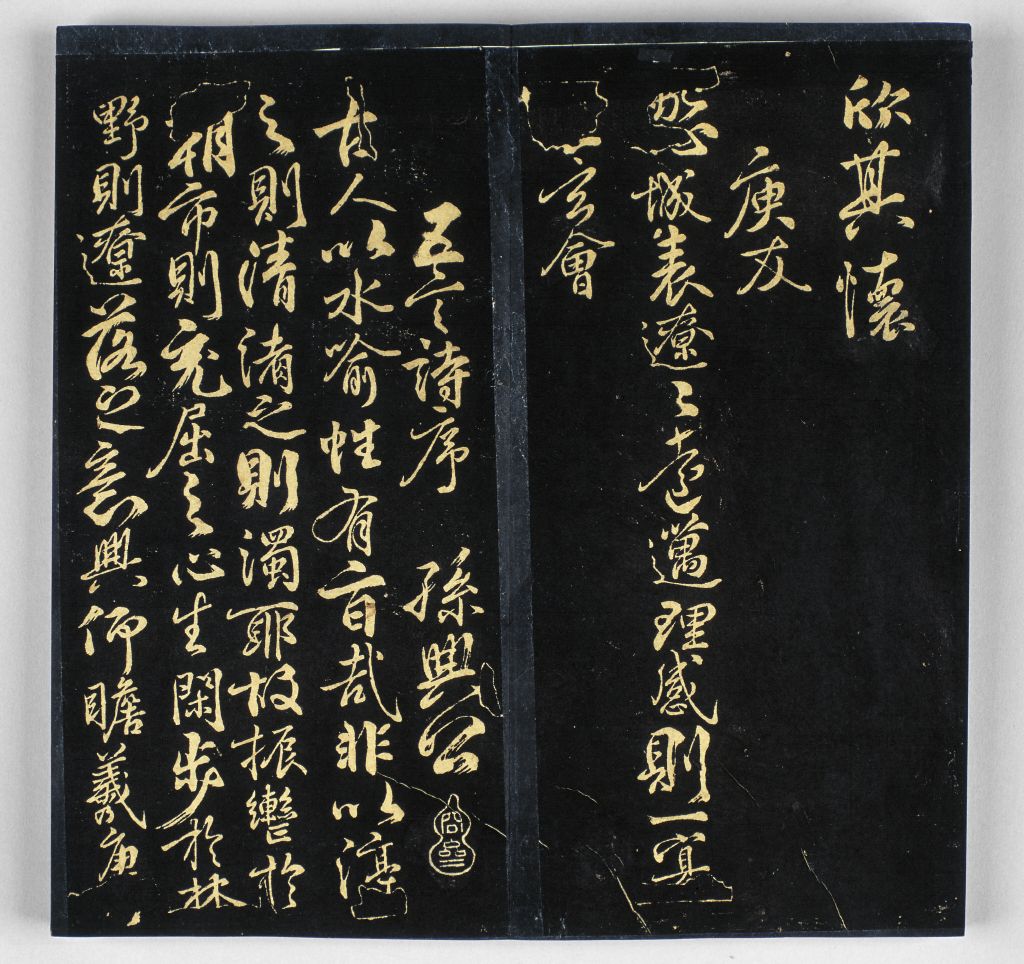 欣其懷
庾友
域表遼〻遠邁理感則一冥
玄會
五言詩序 孫興公
古人以水喻性有旨哉非以渟
之則清淆之則濁耶故振轡於
朝市則充屈之心生閑步於林
野則遼落之意興仰瞻羲唐